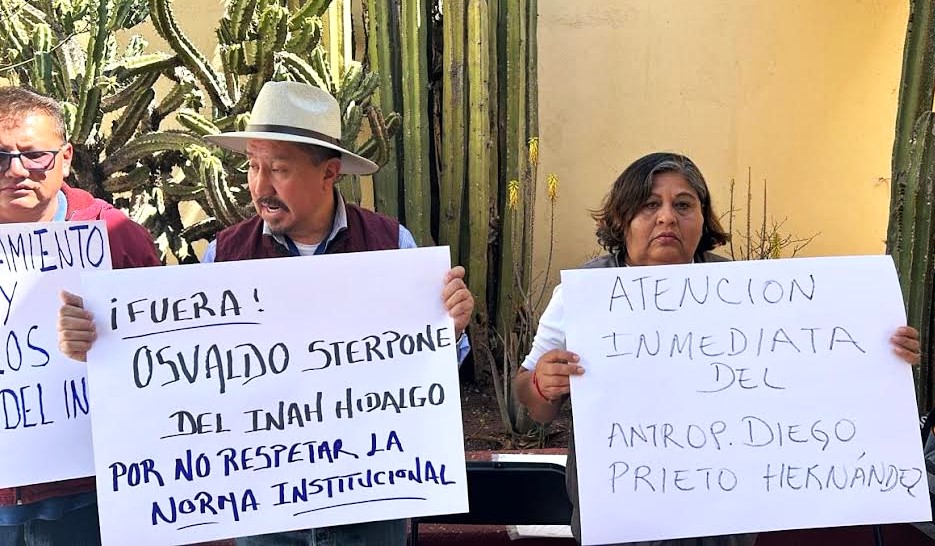 AMIENTO
Y
LOS
DEL IN
¡FUERA!
OSVALDO STERPONE
DEL INAH HIDALGO
POR NO RESPETAR LA
NORMA INSTITUCIONAL
ATENCION
INMEDIATA
DEL
ANTROP. DIEGO
PRIETO HERNÁNDEZ